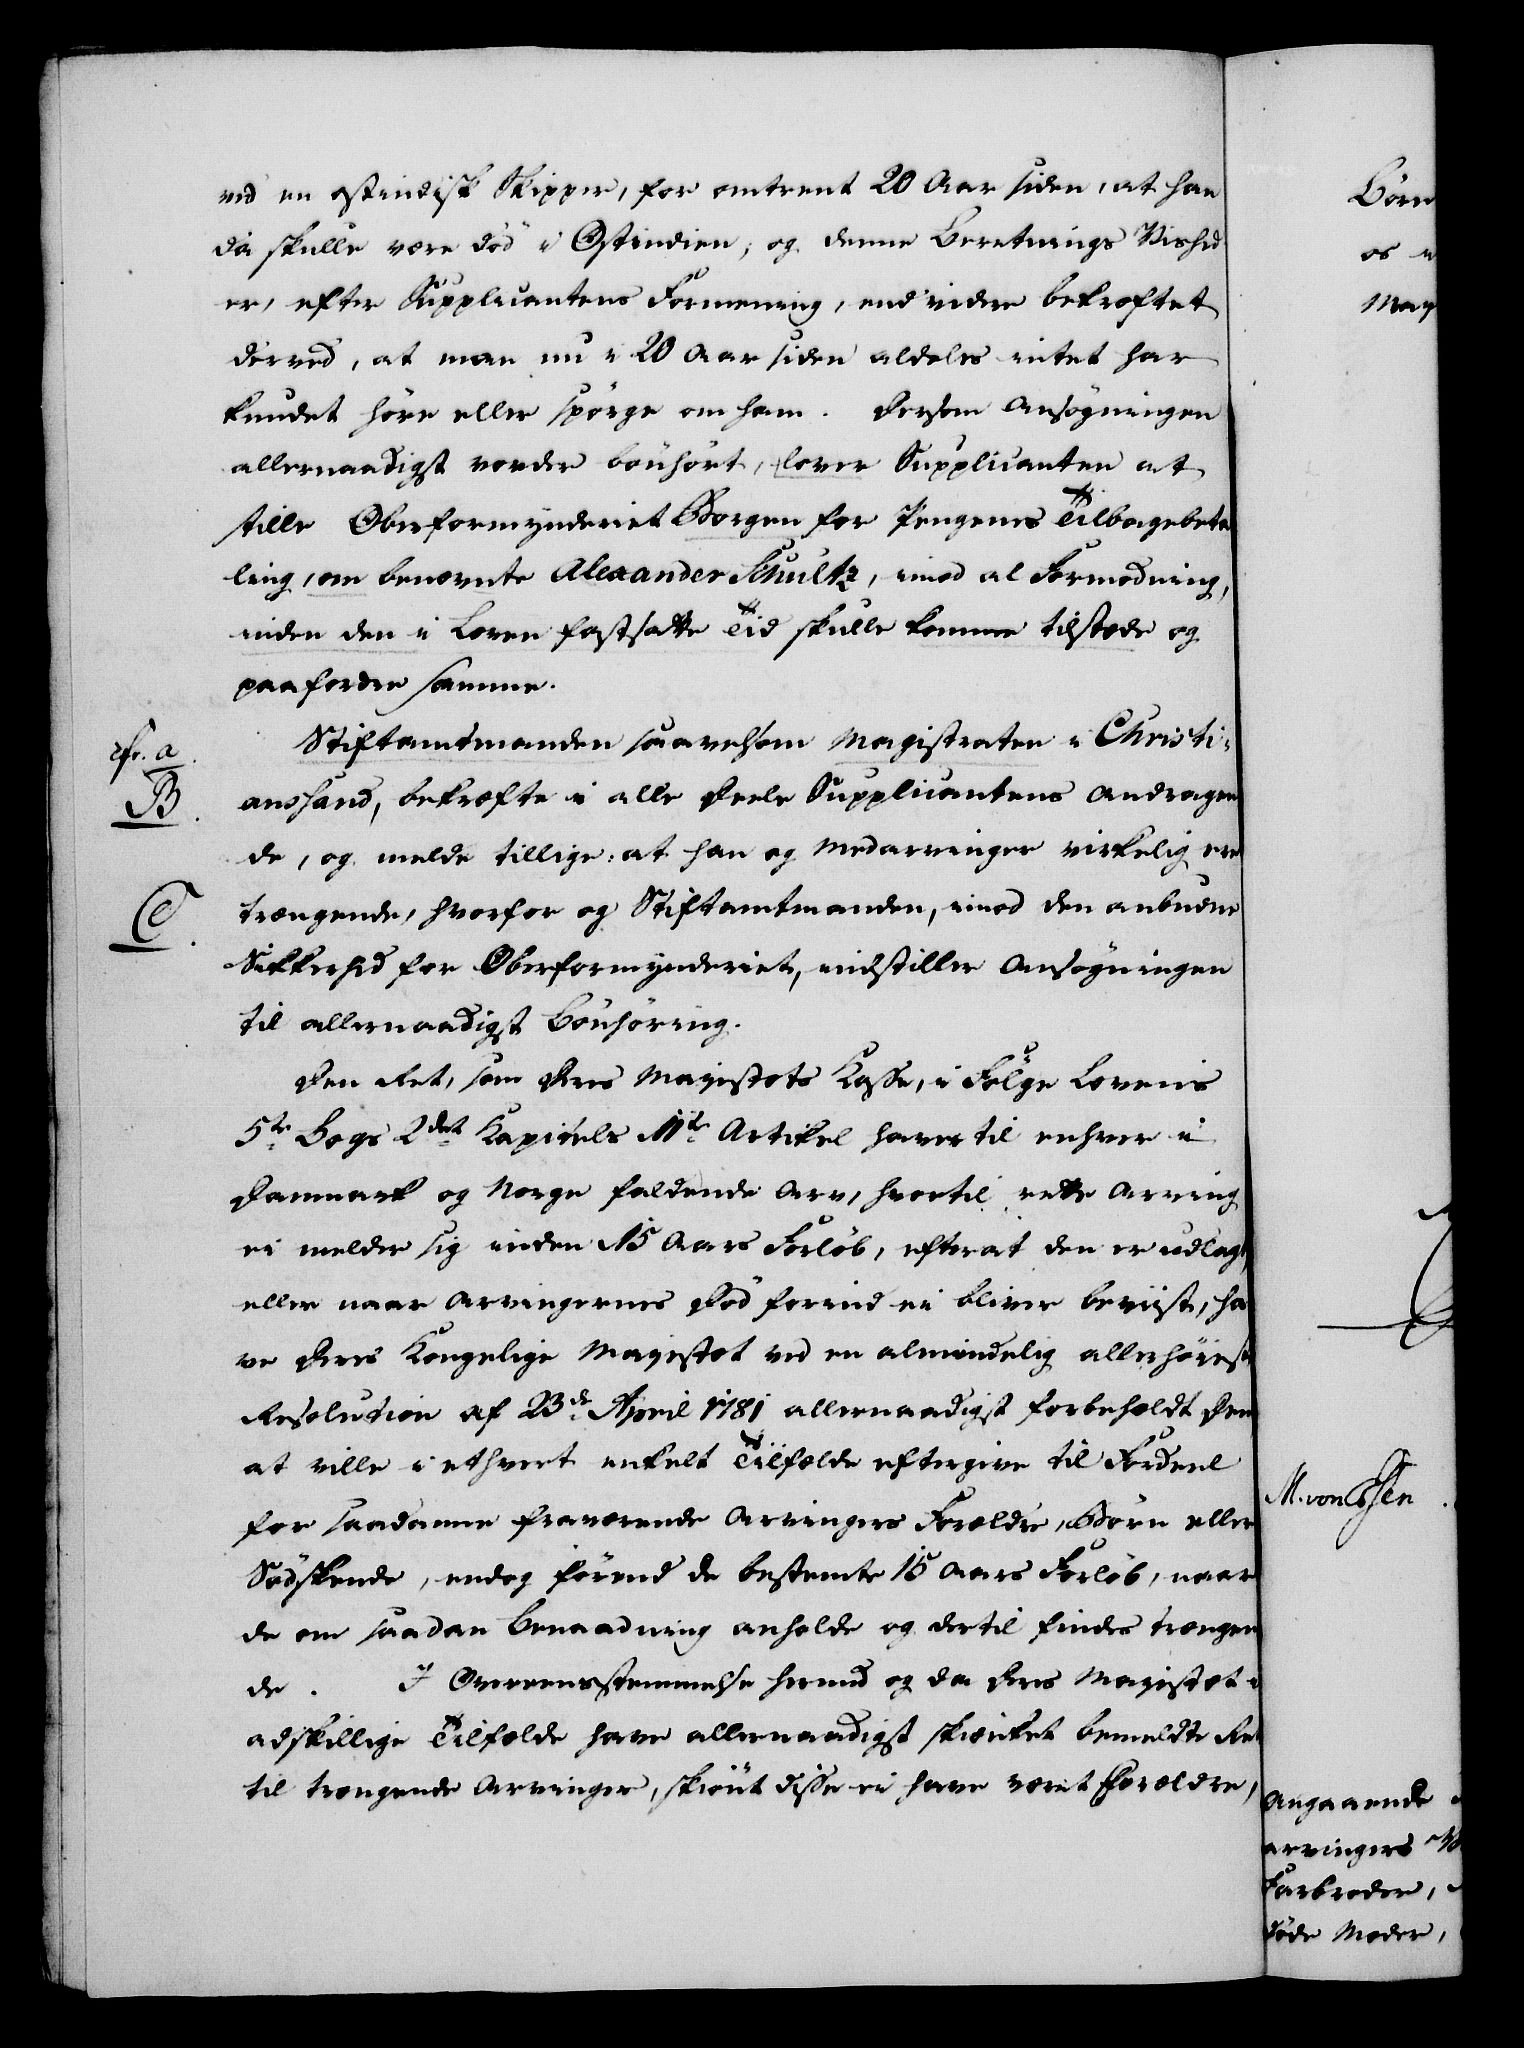 ved en ostindisk Skipper, for omtrent 20 Aar siden, at han
da skulle være död i Ostindien; og denne Beretnings Vished
er, efter Supplicantens Formening, end videre bekræftet
derved, at man nu i 20 Aar siden aldeles intet har
kundet höre eller spörge om ham. Dersom Ansøgningen
allernaadigst vorder bönhört, lover Supplicanten at
stille Oberformynderiet Borgen for Pengenes Tilbagebeta
ling, om benævnte Alexander Schultz, imod al Formodning,
inden den i Loven fastsatte Tid skulle komme tilstæde og
paafordre samme.
cfr. a.
Stiftamtmanden saavelsom Magistraten i Christi-
B.
anssand, bekræfte i alle Deele Supplicantens Andragen
de, og melde tillige: at han og Medarvinger virkelig ere
C.
trængende, hvorfor og Stiftamtmanden, imod den anbudne
Sikkerhed for Oberformynderiet, indstiller Ansøgningen
til allernaadigst Bönhöring.
Den Ret, som Deres Majestæts Kasse, i Fölge Lovens
5te Bogs 2det Kapitels 11te Artikel haver til enhver i
Danmark og Norge faldende Arv, hvortil rette Arving
ei melder sig inden 15 Aars Forlöb, efterat den er udlagt,
eller naar Arvingernes Död forind ei bliver beviist, ha
ve Deres Kongelige Majestæt ved en almindelig allerhöieste
Resolution af 23de April 1781 allernaadigst forbeholdt Dem
at ville i ethvert enkelt Tilfælde eftergive til Fordeel
for saadanne fraværende Arvingers Forældre, Börn eller
Södskende, endog förend de bestemte 15 Aars Forlöb, naar
de om saadan Benaadning anholde og dertil findes trængen
de. I Overeensstemmelse hermed og da Deres Majestæt i
adskillige Tilfælde have allernaadigst skienket bemeldte Ret
til trængende Arvinger, skiönt disse ei have været Forældre,
Börn
os
May
M. von Essen.
Angaaende
Arvingers
Farbroder,
döde Moder,